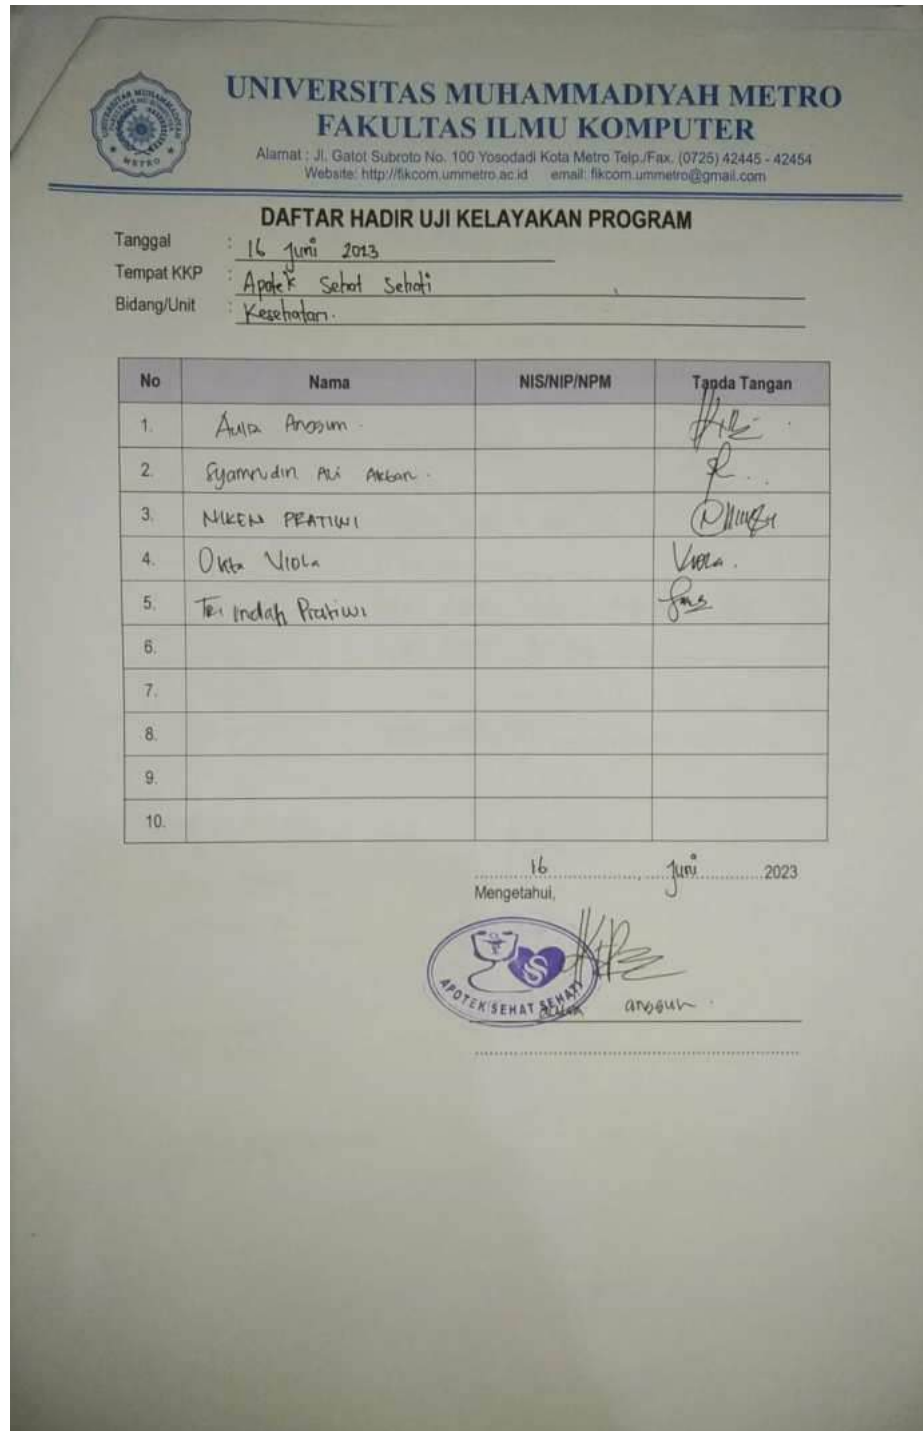 UNIVERSITAS MUHAMMADIYAH METRO
FAKULTAS ILMU KOMPUTER
Alamat : Jl. Gatot Subroto No. 100 Yosodadi Kota Metro Telp./Fax. (0725) 42445 - 42454
Website: http://fikcom.ummetro.ac.id email: fikcom.ummetro@gmail.com
METRO
DAFTAR HADIR UJI KELAYAKAN PROGRAM
Tanggal : 16 Juni 2023
Tempat KKP : Apotek Sehat Sehati
Bidang/Unit : Kesehatan.
No Nama NIS/NIP/NPM Tanda Tangan
1. Aulia Anggun
2. Syamrudin Ali Akbar.
3. NIKEN PRATIWI
4. Okta Viola Viola.
5. Tri Indah Pratiwi
6.
7.
8.
9.
10.
16, Juni 2023
Mengetahui,
APOTEK SEHAT SEHATI
anggun